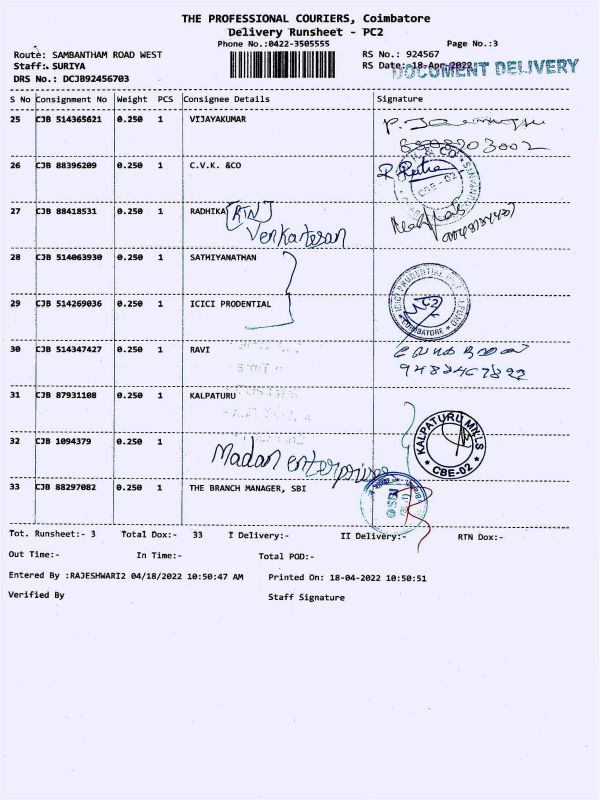 THE PROFESSIONAL COURIERS, Coimbatore
Delivery Runsheet - PC2
Phone No.:0422-3505555 Page No.:3
Route: SAMBANTHAM ROAD WEST RS No.: 924567
Staff: SURIYA RS Date: 18-Apr-2022
DOCUMENT DELIVERY
DRS No.: DCJB92456703
S No Consignment No Weight PCS Consignee Details Signature
25 CJB 514365621 0.250 1 VIJAYAKUMAR
26 CJB 88396209 0.250 1 C.V.K. &CO
27 CJB 88418531 0.250 1 RADHIKA
Venkatesan
28 CJB 514063930 0.250 1 SATHIYANATHAN
29 CJB 514269036 0.250 1 ICICI PRODENTIAL
COIMBATORE
30 CJB 514347427 0.250 1 RAVI
31 CJB 87931108 0.250 1 KALPATURU
KALPATURU MILLS
CBE-02
32 CJB 1094379 0.250 1
Madan enterprises
33 CJB 88297082 0.250 1 THE BRANCH MANAGER, SBI
Tot. Runsheet:- 3 Total Dox:- 33 I Delivery:- II Delivery:- RTN Dox:-
Out Time:- In Time:- Total POD:-
Entered By :RAJESHWARI2 04/18/2022 10:50:47 AM Printed On: 18-04-2022 10:50:51
Verified By Staff Signature